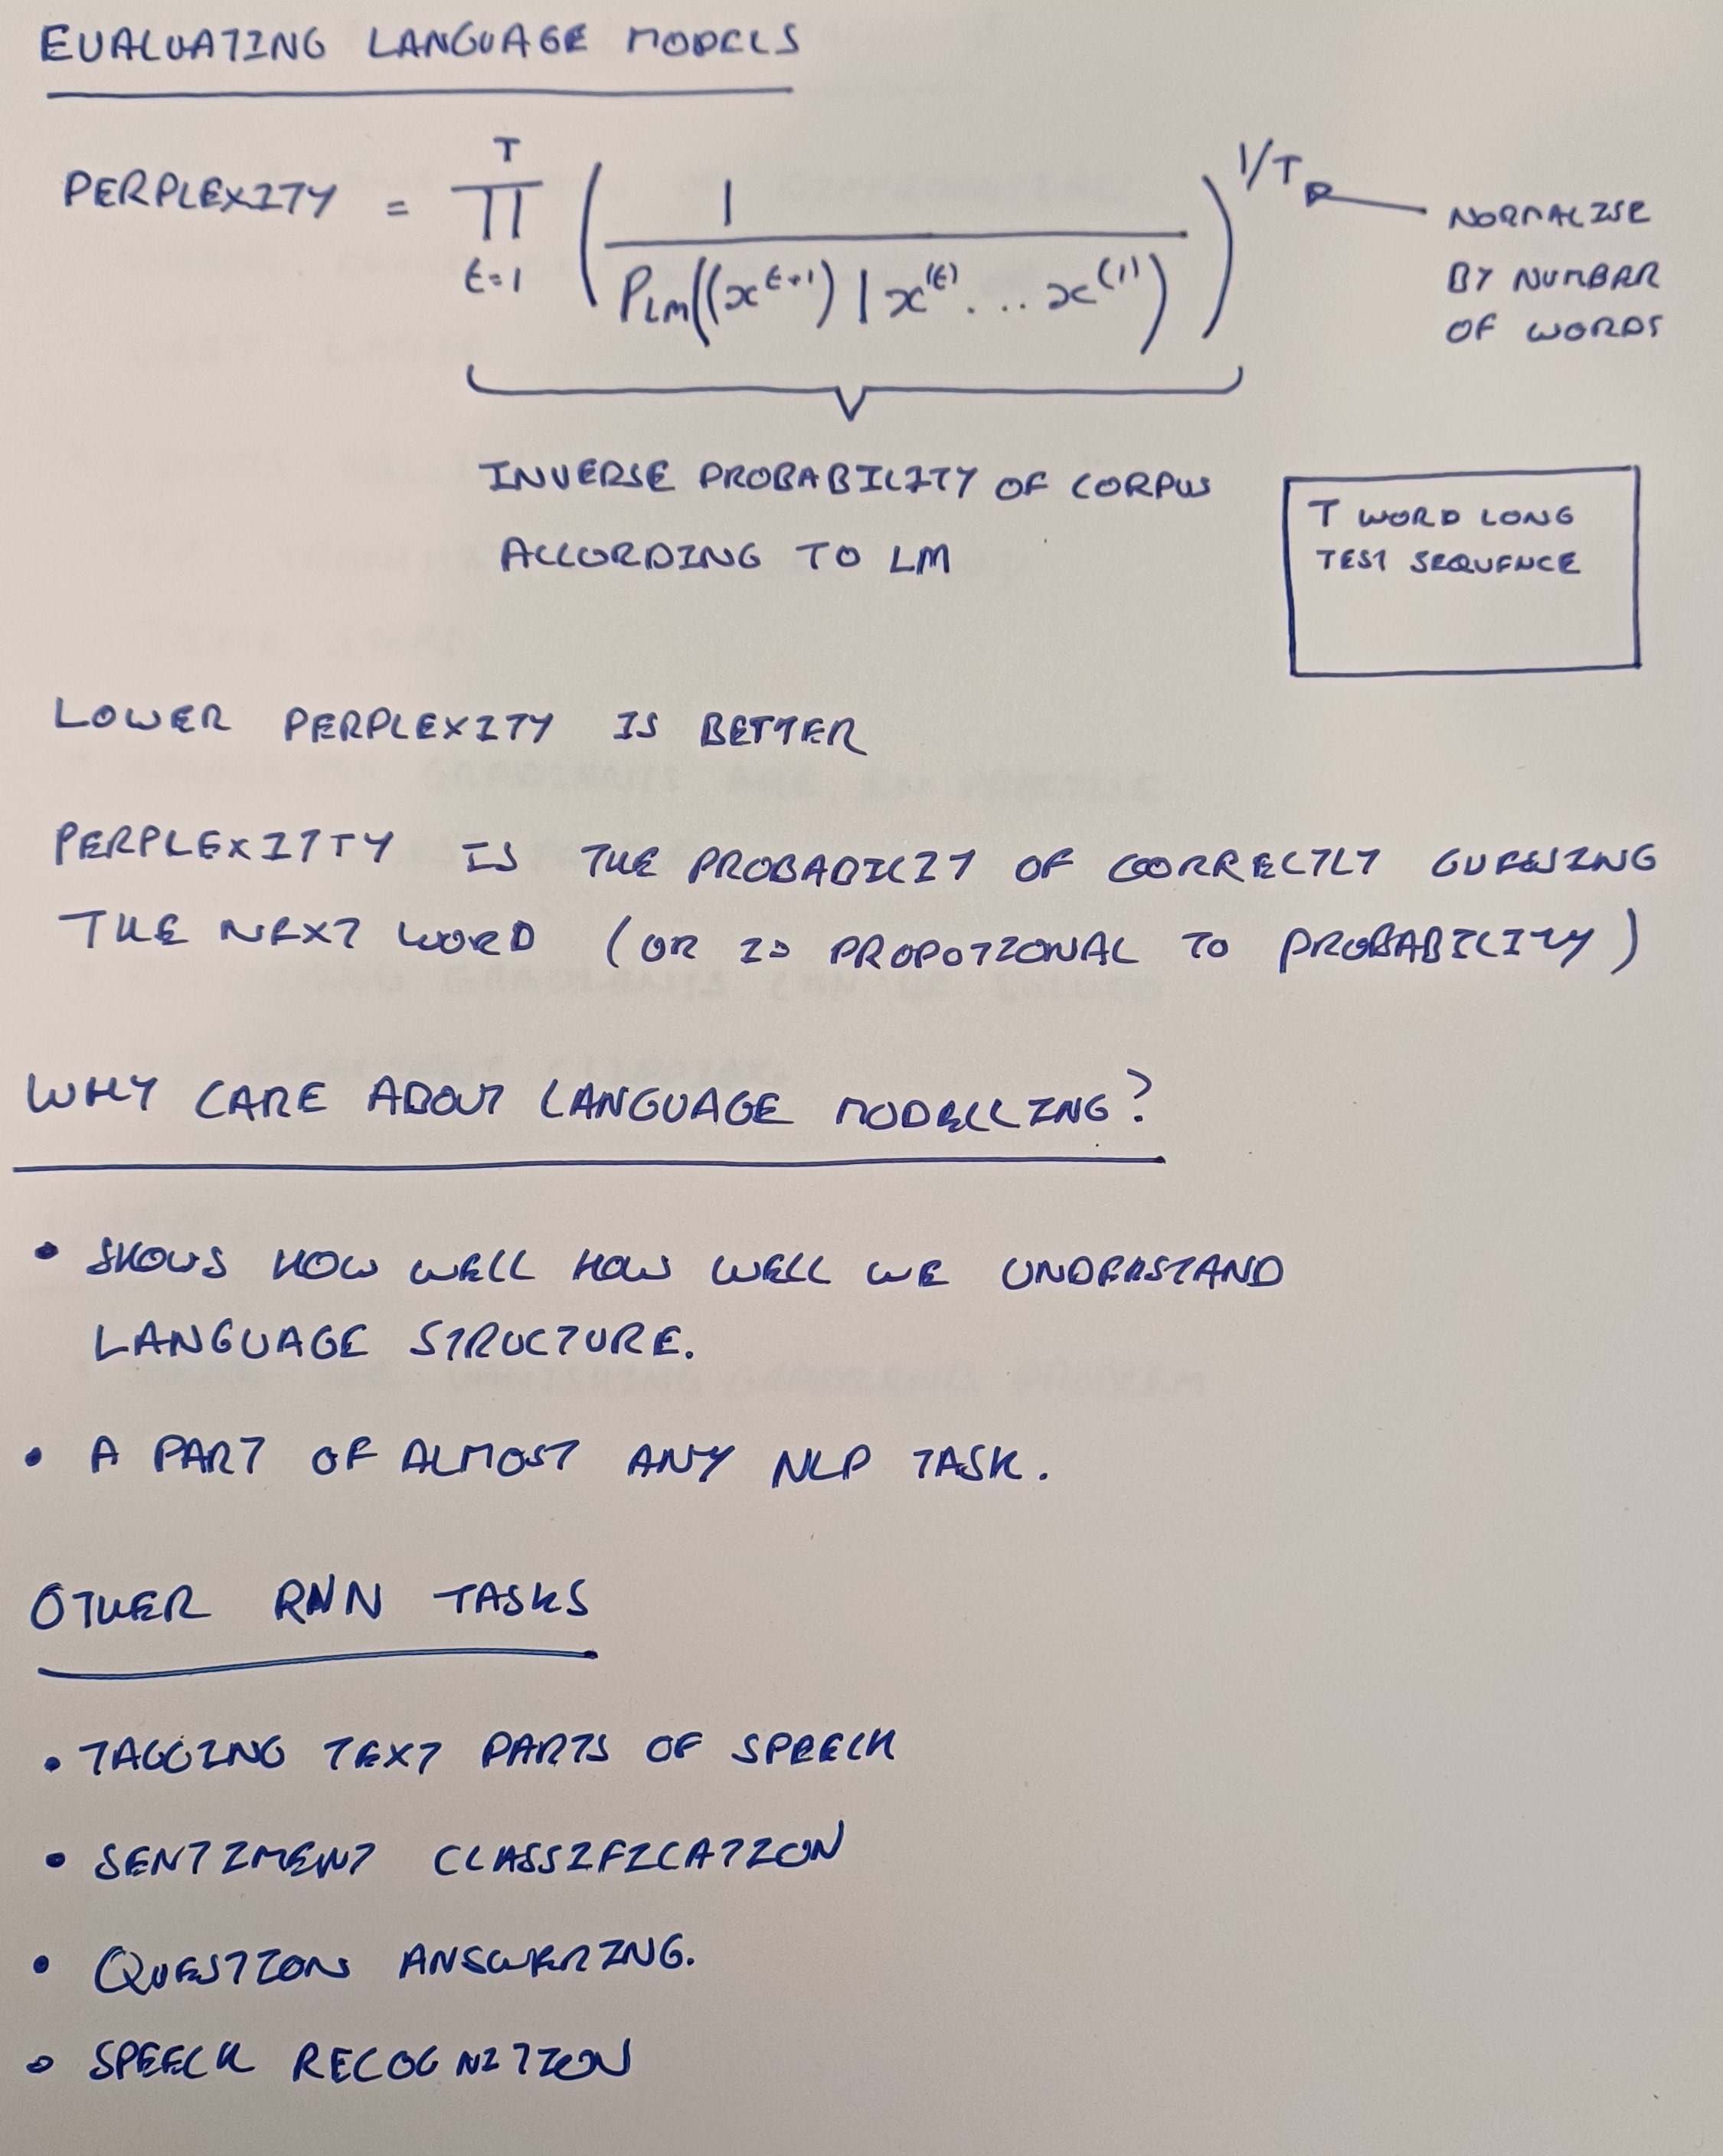 EVALUATING LANGUAGE MODELS
PERPLEXITY = T ∏ t=1 ( 1 / PLM((x^t+1) | x^(t) . . . x^(1)) )^1/T
NORMALISE
BY NUMBER
OF WORDS
INVERSE PROBABILITY OF CORPUS
ACCORDING TO LM
T WORD LONG
TEST SEQUENCE
LOWER PERPLEXITY IS BETTER
PERPLEXIITY IS THE PROBABILIY OF CORRECTLY GUESSING
THE NEXT WORD (OR IS PROPOTIONAL TO PROBABILITY)
WHY CARE ABOUT LANGUAGE MODELLING?
• SHOWS HOW WELL HOW WELL WE UNDERSTAND
LANGUAGE STRUCTURE.
• A PART OF ALMOST ANY NLP TASK.
OTHER RNN TASKS
• TAGGING TEXT PARTS OF SPEECH
• SENTIMENT CLASSIFICATION
• QUESTION ANSWERING.
• SPEECH RECOGNITION